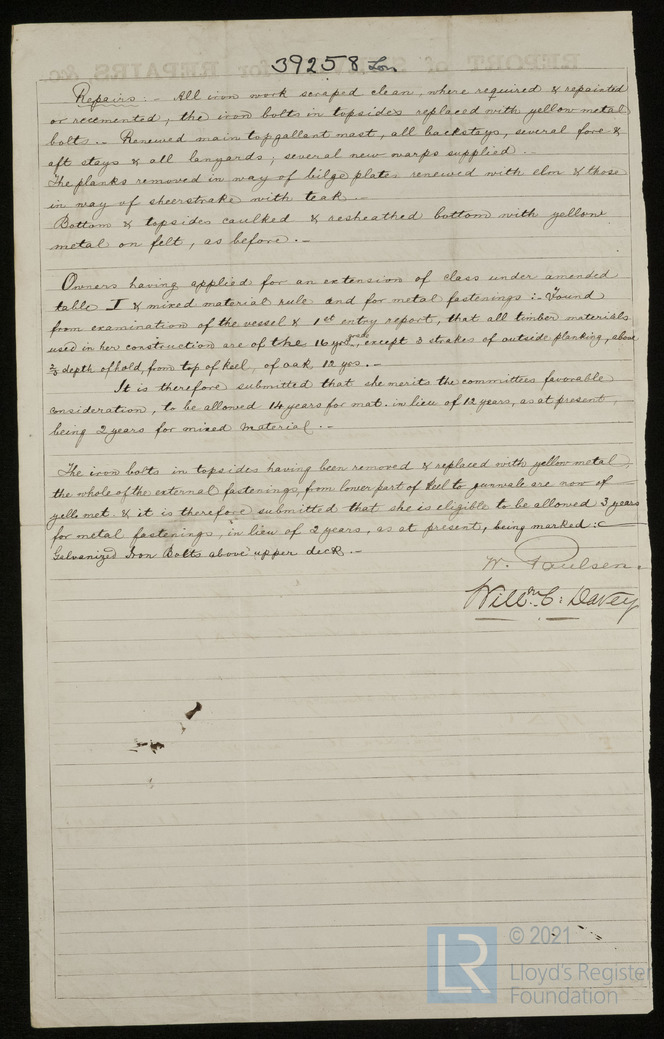 39258 Lon
Repairs :- All iron work scraped clean, where required & repainted
or recemented, the iron bolts in topsides replaced with yellow metal
bolts.- Renewed main topgallant mast, all backstays, several fore &
aft stays & all lanyards, several new warps supplied.-
The planks removed in way of bilge plates renewed with elm & those
in way of sheerstrake with teak.-
Bottom & topsides caulked & resheathed bottom with yellow
metal on felt, as before.-
Owners having applied for an extension of class under amended
table I & mixed material rule and for metal fastenings :- Found
from examination of the vessel & 1st entry report, that all timber materials
used in her construction are of the 16 yrs grade, except 3 strakes of outside planking, above
2/3 depth of hold, from top of keel, of oak 12 yrs.-
It is therefore submitted that she merits the committees favorable
consideration, to be allowed 14 years for mat. in lieu of 12 years, as at present,
being 2 years for mixed material.-
The iron bolts in topsides having been removed & replaced with yellow metal,
the whole of the external fastenings, from lower part of keel to gunwale are now of
yello met. & it is therefore submitted that she is eligible to be allowed 3 years
for metal fastenings, in lieu of 2 years, as at present, being marked :-
Galvanized Iron Bolts above upper deck.-
W. Paulsen.
Willm C: Davey
© 2021
LR
Lloyd's Register
Foundation